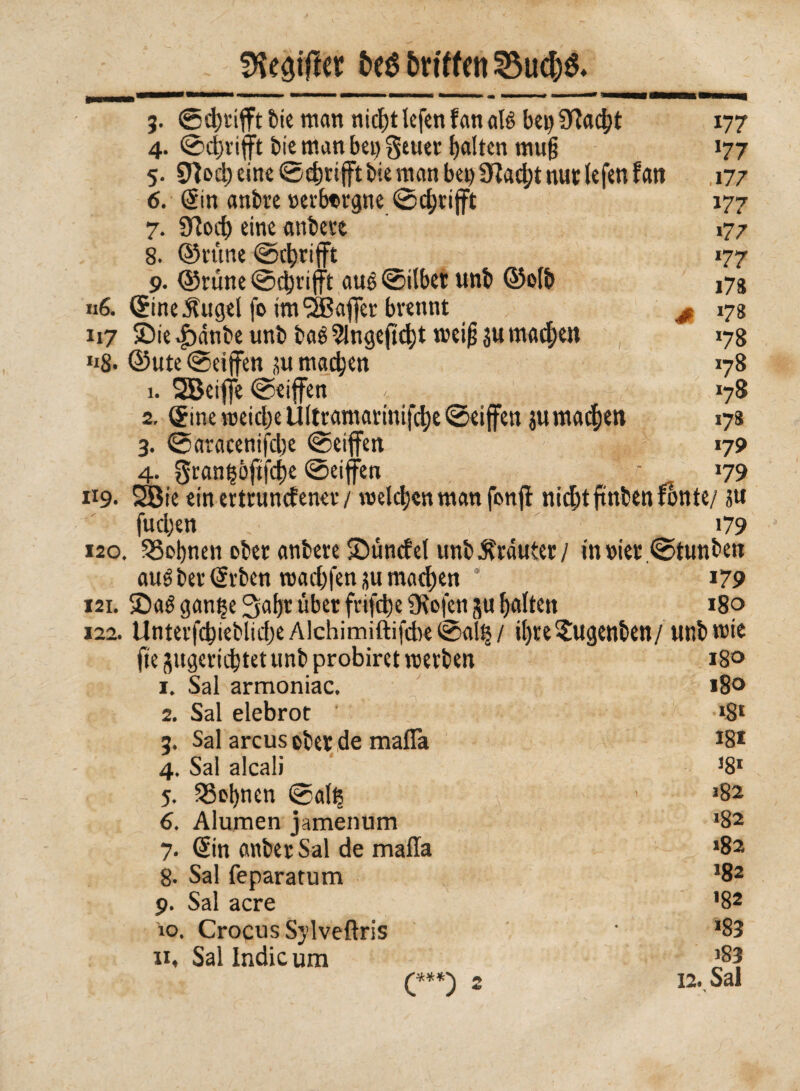 Regiſter deß dritten Buchß.
3. Schrifft die man nicht leſen kan als bey Nacht 177
4. Schrifft die man bey Feuer halten muß 177
5. Noch eine Schrifft die man bey Nacht nur leſen kan 177
6. Ein andre verborgne Schrifft 177
7. Noch eine andere 177
8. Grüne Schrifft 177
9. Grüne Schrifft aus Silber und Gold 178
116. Eine Kugel ſo im Waſſer brennt 178
117 Die Hände und das Angeſicht weiß zu machen 178
118. Gute Seiffen zu machen 178
1. Weiſſe Seiffen 178
2. Eine weiche Ultramariniſche Seiffen zu machen 178
3. Saraceniſche Seiffen 179
4. Frantzöſiſche Seiffen 179
119. Wie ein ertrunckener / welchen man ſonſt nicht finden könte / zu
ſuchen 179
120. Bohnen oder andere Dünckel und Kräuter / in vier Stunden
aus der Erden wachſen zu machen 179
121. Das gantze Jahr über friſche Roſen zu halten 180
122. Unterſchiedliche Alchimiſtiſche Saltz / ihre Tugenden / und wie
ſie zugerichtet und probiret werden 180
1. Sal armoniac. 180
2. Sal elebrot 181
3. Sal arcus oder de maſſa 181
4. Sal alcali 181
5. Bohnen Saltz 182
6. Alumen jamenum 182
7. Ein ander Sal de maſſa 182
8. Sal ſeparatum 182
9. Sal acre 182
10. Crocus Sylveſtris 183
11. Sal Indicum 183
(***) 2 12. Sal